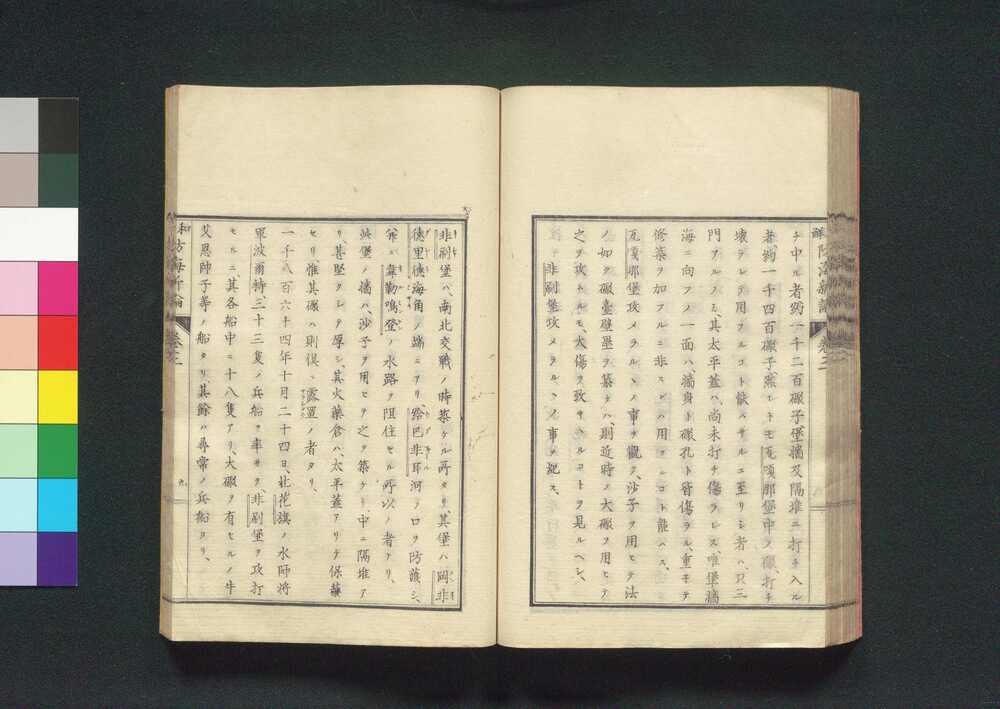 チ中ル者約一千二百礮子堡墻及隔堆ニ打チ入ル
者約一千四百礮子、然レトモ瓦嗄那堡中ノ礮打チ
壊ラレテ用フルコト能ハサルニ至リシ者ハ、只三
門アルノミ、其太平蓋ハ、尚未打チ傷ラレス、唯堡墻
海ニ向フノ一面ハ、墻身ト礮孔ト皆傷ラル、重モテ
修築ヲ加フルニ非スンハ用フルコト能ハス、
瓦嗄那堡攻メラルヽノ事ヲ観ク、沙子ヲ用ヒテ法
ノ如ク礮臺壁壘ヲ築ケハ、則近時ノ大礮ヲ用ヒテ
之ヲ攻ルトモ、大傷ヲ致サヽルコトヲ見ルヘシ、
非刷堡攻メラルヽノ事ヲ紀ス、
非刷堡ハ、南北交戰ノ時築ケル所ナリ、其堡ハ岡非
德里德海角ノ端ニアリ、給巴非耳河ノ口ヲ防護シ、
韋勒鳴登ノ水路ヲ阻住セル所以ノ者ナリ、
此堡ノ墻ハ、沙子ヲ用ヒテ之ヲ築ケリ、中ニ隔堆ア
リ、甚堅クシテ厚シ、其火藥倉ハ、太平蓋アリテ保護
セリ、惟其礮ハ則倶ニ露置ノ者ナリ、
一千八百六十四年十月二十四日、北花旗ノ水師将
軍波爾特、三十三隻ノ兵船ヲ率ヰテ非刷堡ヲ攻打
セルニ、其各船中ニ十八隻アリ、大礮ヲ有セルノ牛
艾恩帥子等ノ船ナリ、其餘ハ尋常ノ兵船ナリ、